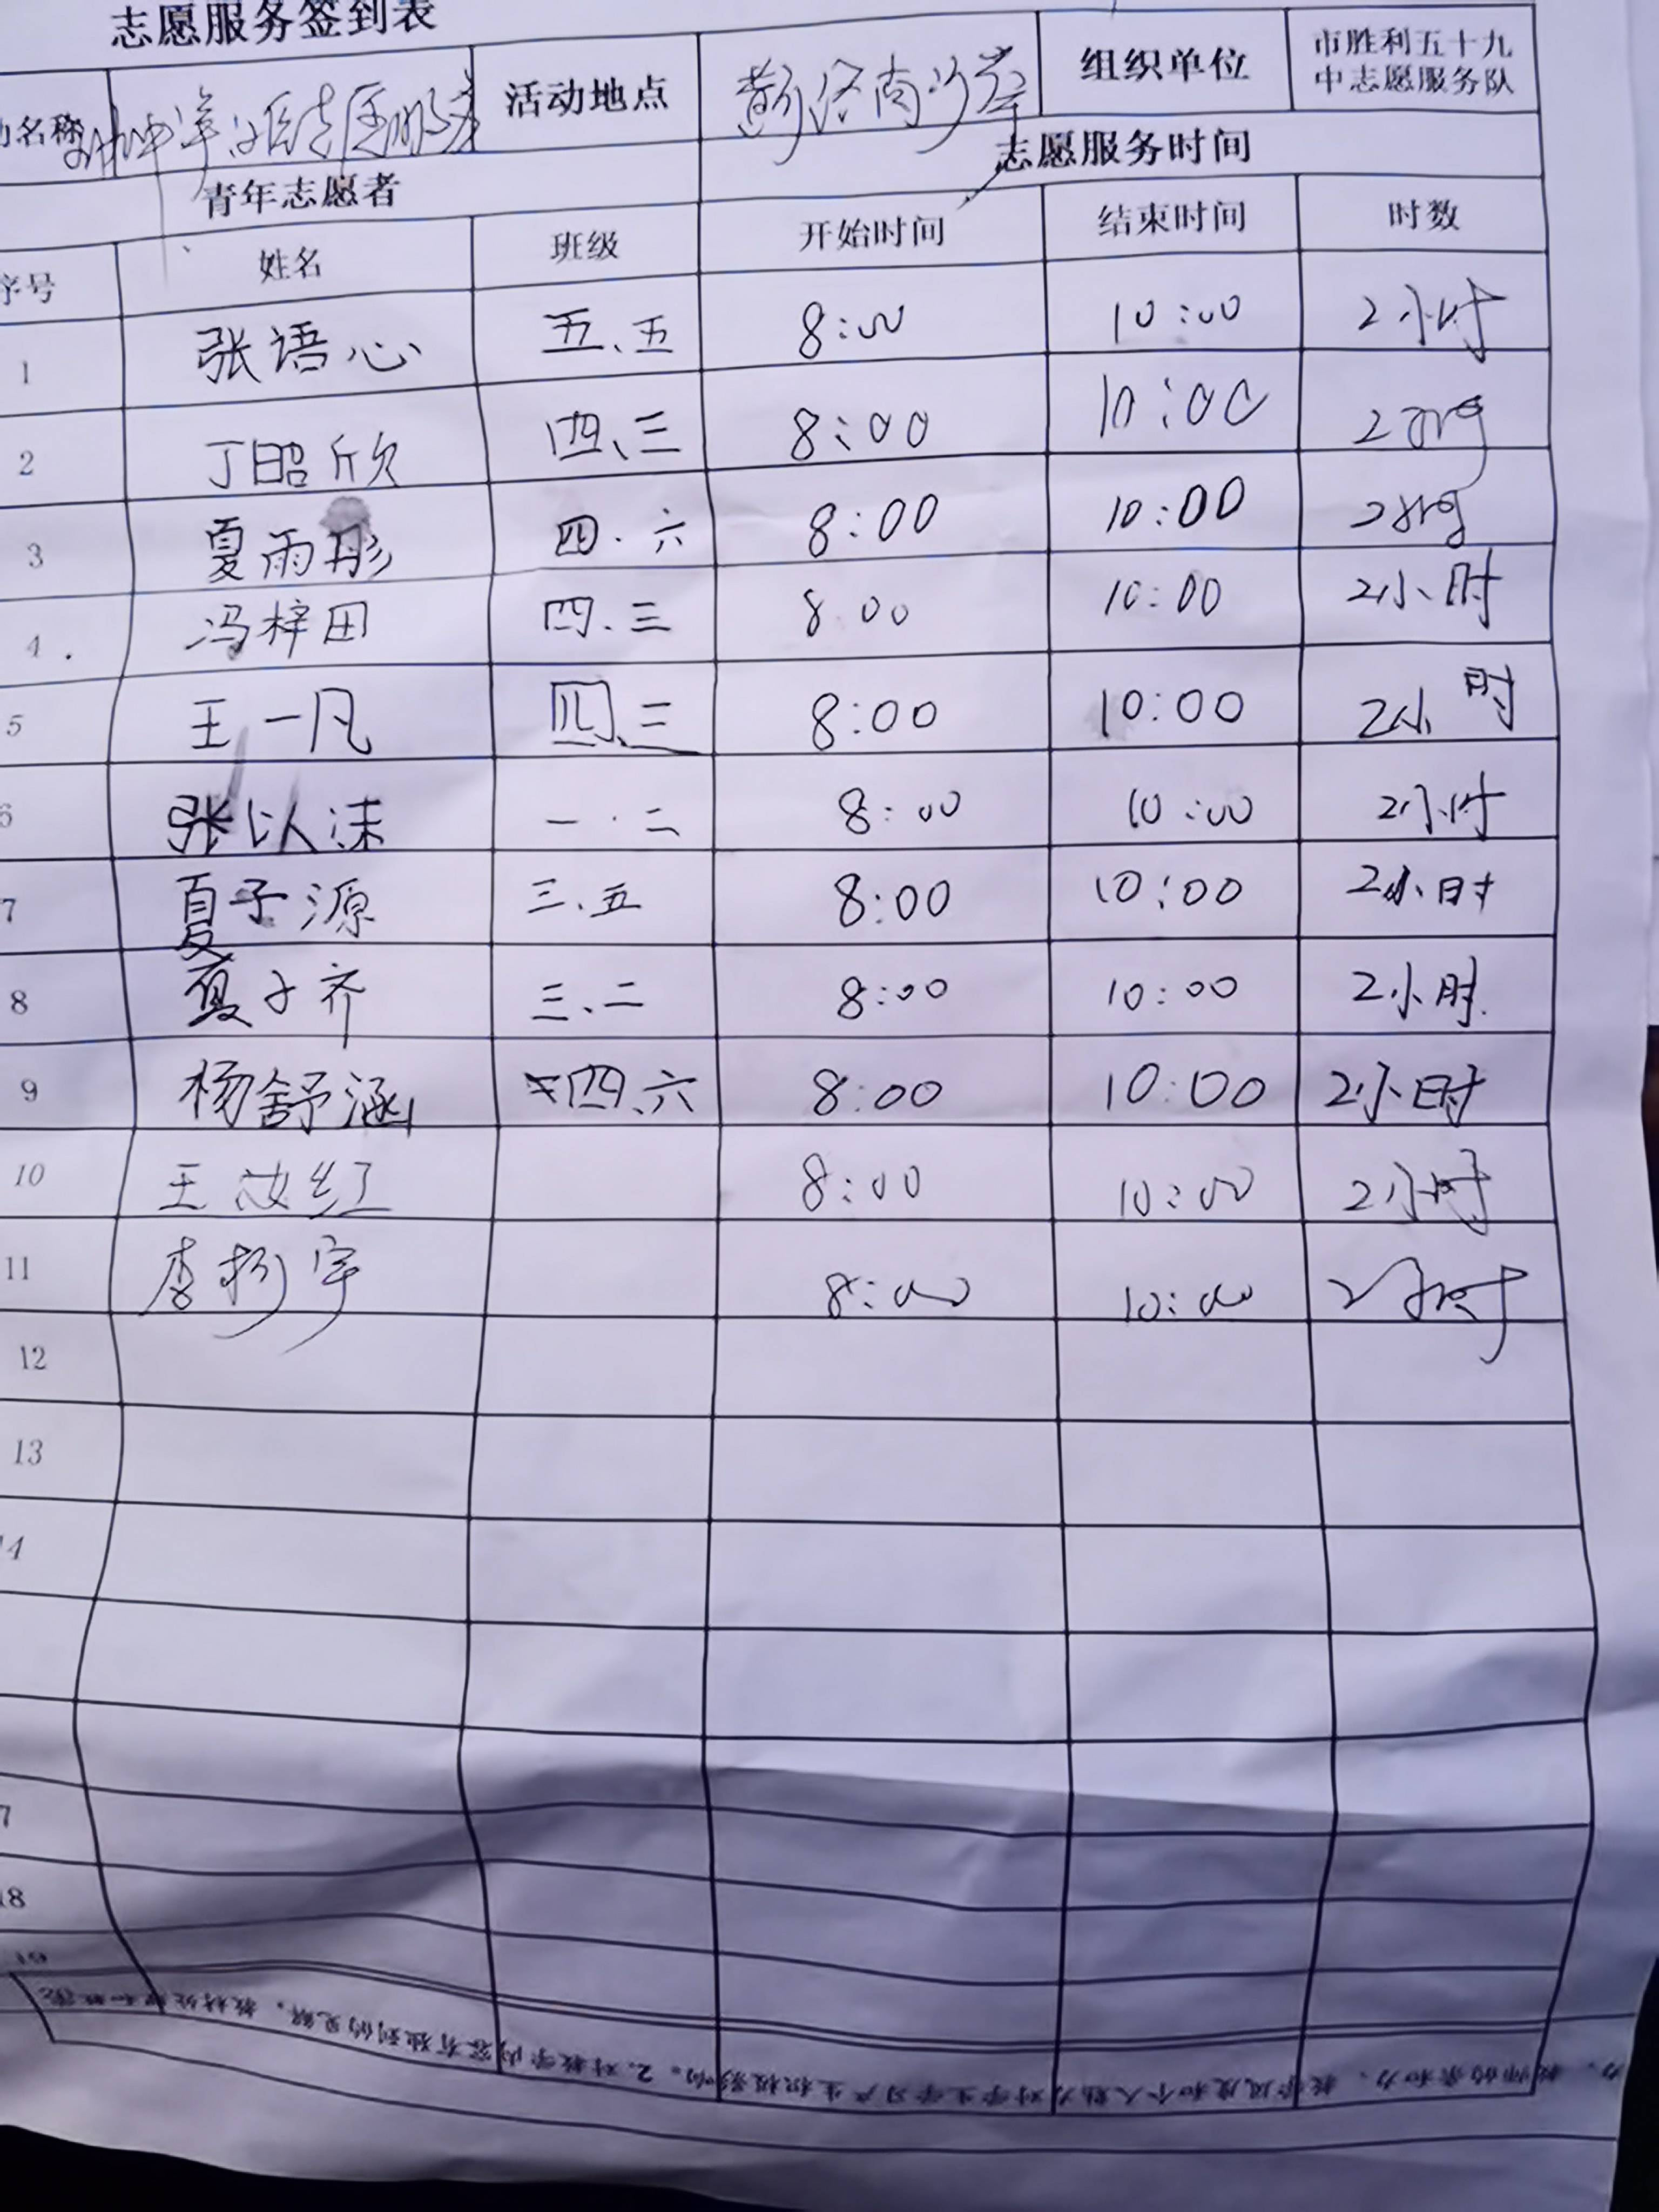 志愿服务签到表
名称 活动地点 组织单位 市胜利五十九
中志愿服务队
青年志愿者 志愿服务时间
序号 姓名 班级 开始时间 结束时间 时数
1 张语心 五、五 8:00 10:00 2小时
2 丁昭欣 四、三 8:00 10:00 2小时
3 夏雨彤 四.六 8:00 10:00 2小时
4 冯梓田 四、三 8:00 10:00 2小时
5 王一凡 四、三 8:00 10:00 2小时
6 张以沫 一.二 8:00 10:00 2小时
7 夏子源 三、五 8:00 10:00 2小时
8 夏子齐 三、二 8:00 10:00 2小时
9 杨舒涵 四、六 8:00 10:00 2小时
10 王 红 8:00 10:00 2小时
11 李 宇 8:00 10:00 2小时
12
13
14
7
18
19
力、教师的亲和力、教学风度和个人魅力对学生学习产生积极影响。2.对教学内容有独到的见解，教材处理和整